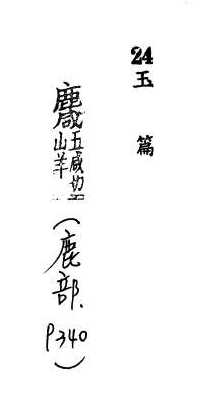 24玉篇
麙五咸切山羊(鹿部.P340)